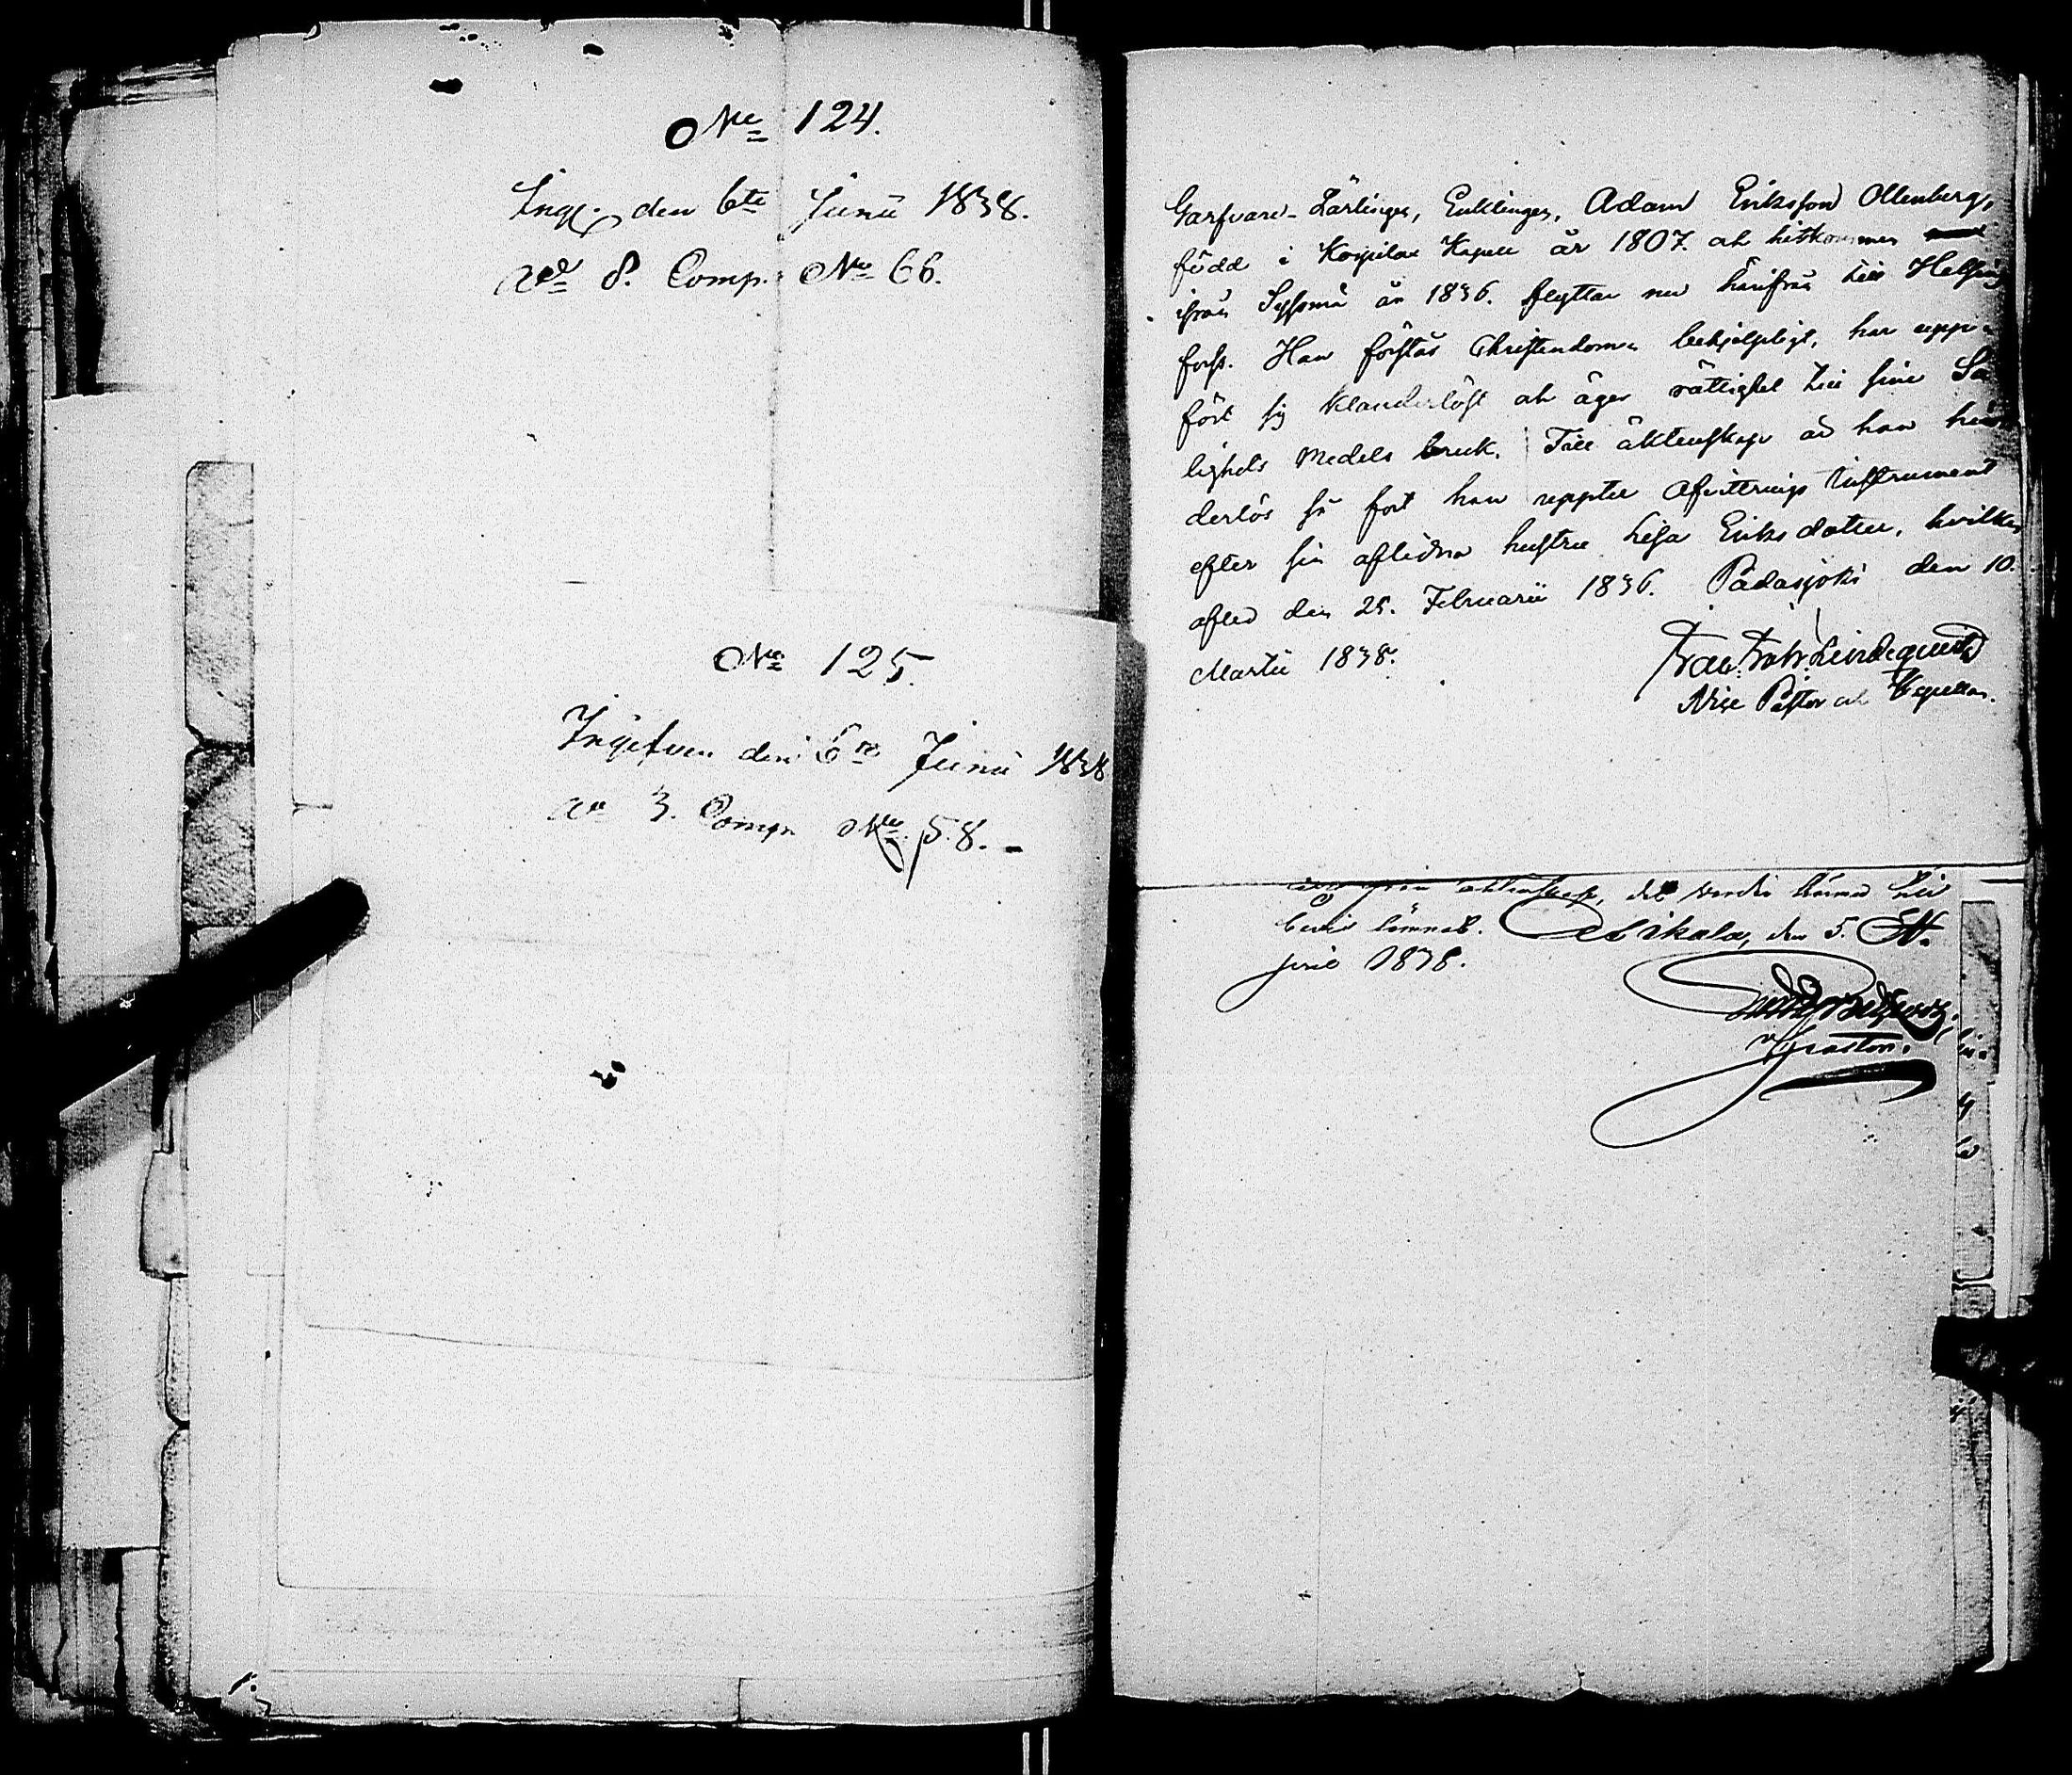 No 124.
Ing. den 6te Junii 1838.
8. Comp. No 66.
No 125.
den 6te Junii 1838
3. Comp. No. 58.
Garfvare-Lärlingen, Enklingen, Adam Eriksson Ollenberg,
född i Korpilax Kapell år 1807. och hitkommen
ifrån Sysmä år 1836. flyttar nu härifrån till Helsing
fors. Han förstår Christendomen behjelpligt, har upp-
fört sig klanderlöst och äger rättighet till sine Sa
lighets Medels bruk. Till äktenskap är han hin
derlös så fort han uppter Afvittrings Instrument
efter sin aflidna hustru Lisa Eriksdotter, hvilken
afled den 25. Februarii 1836. Padasjoki den 10.
Martii 1838.
Lindequist
Vice Pastor och Kapellan.
äktenskap, det varder härmed till
bevis lämnat. Asikala, den 5.
1838.